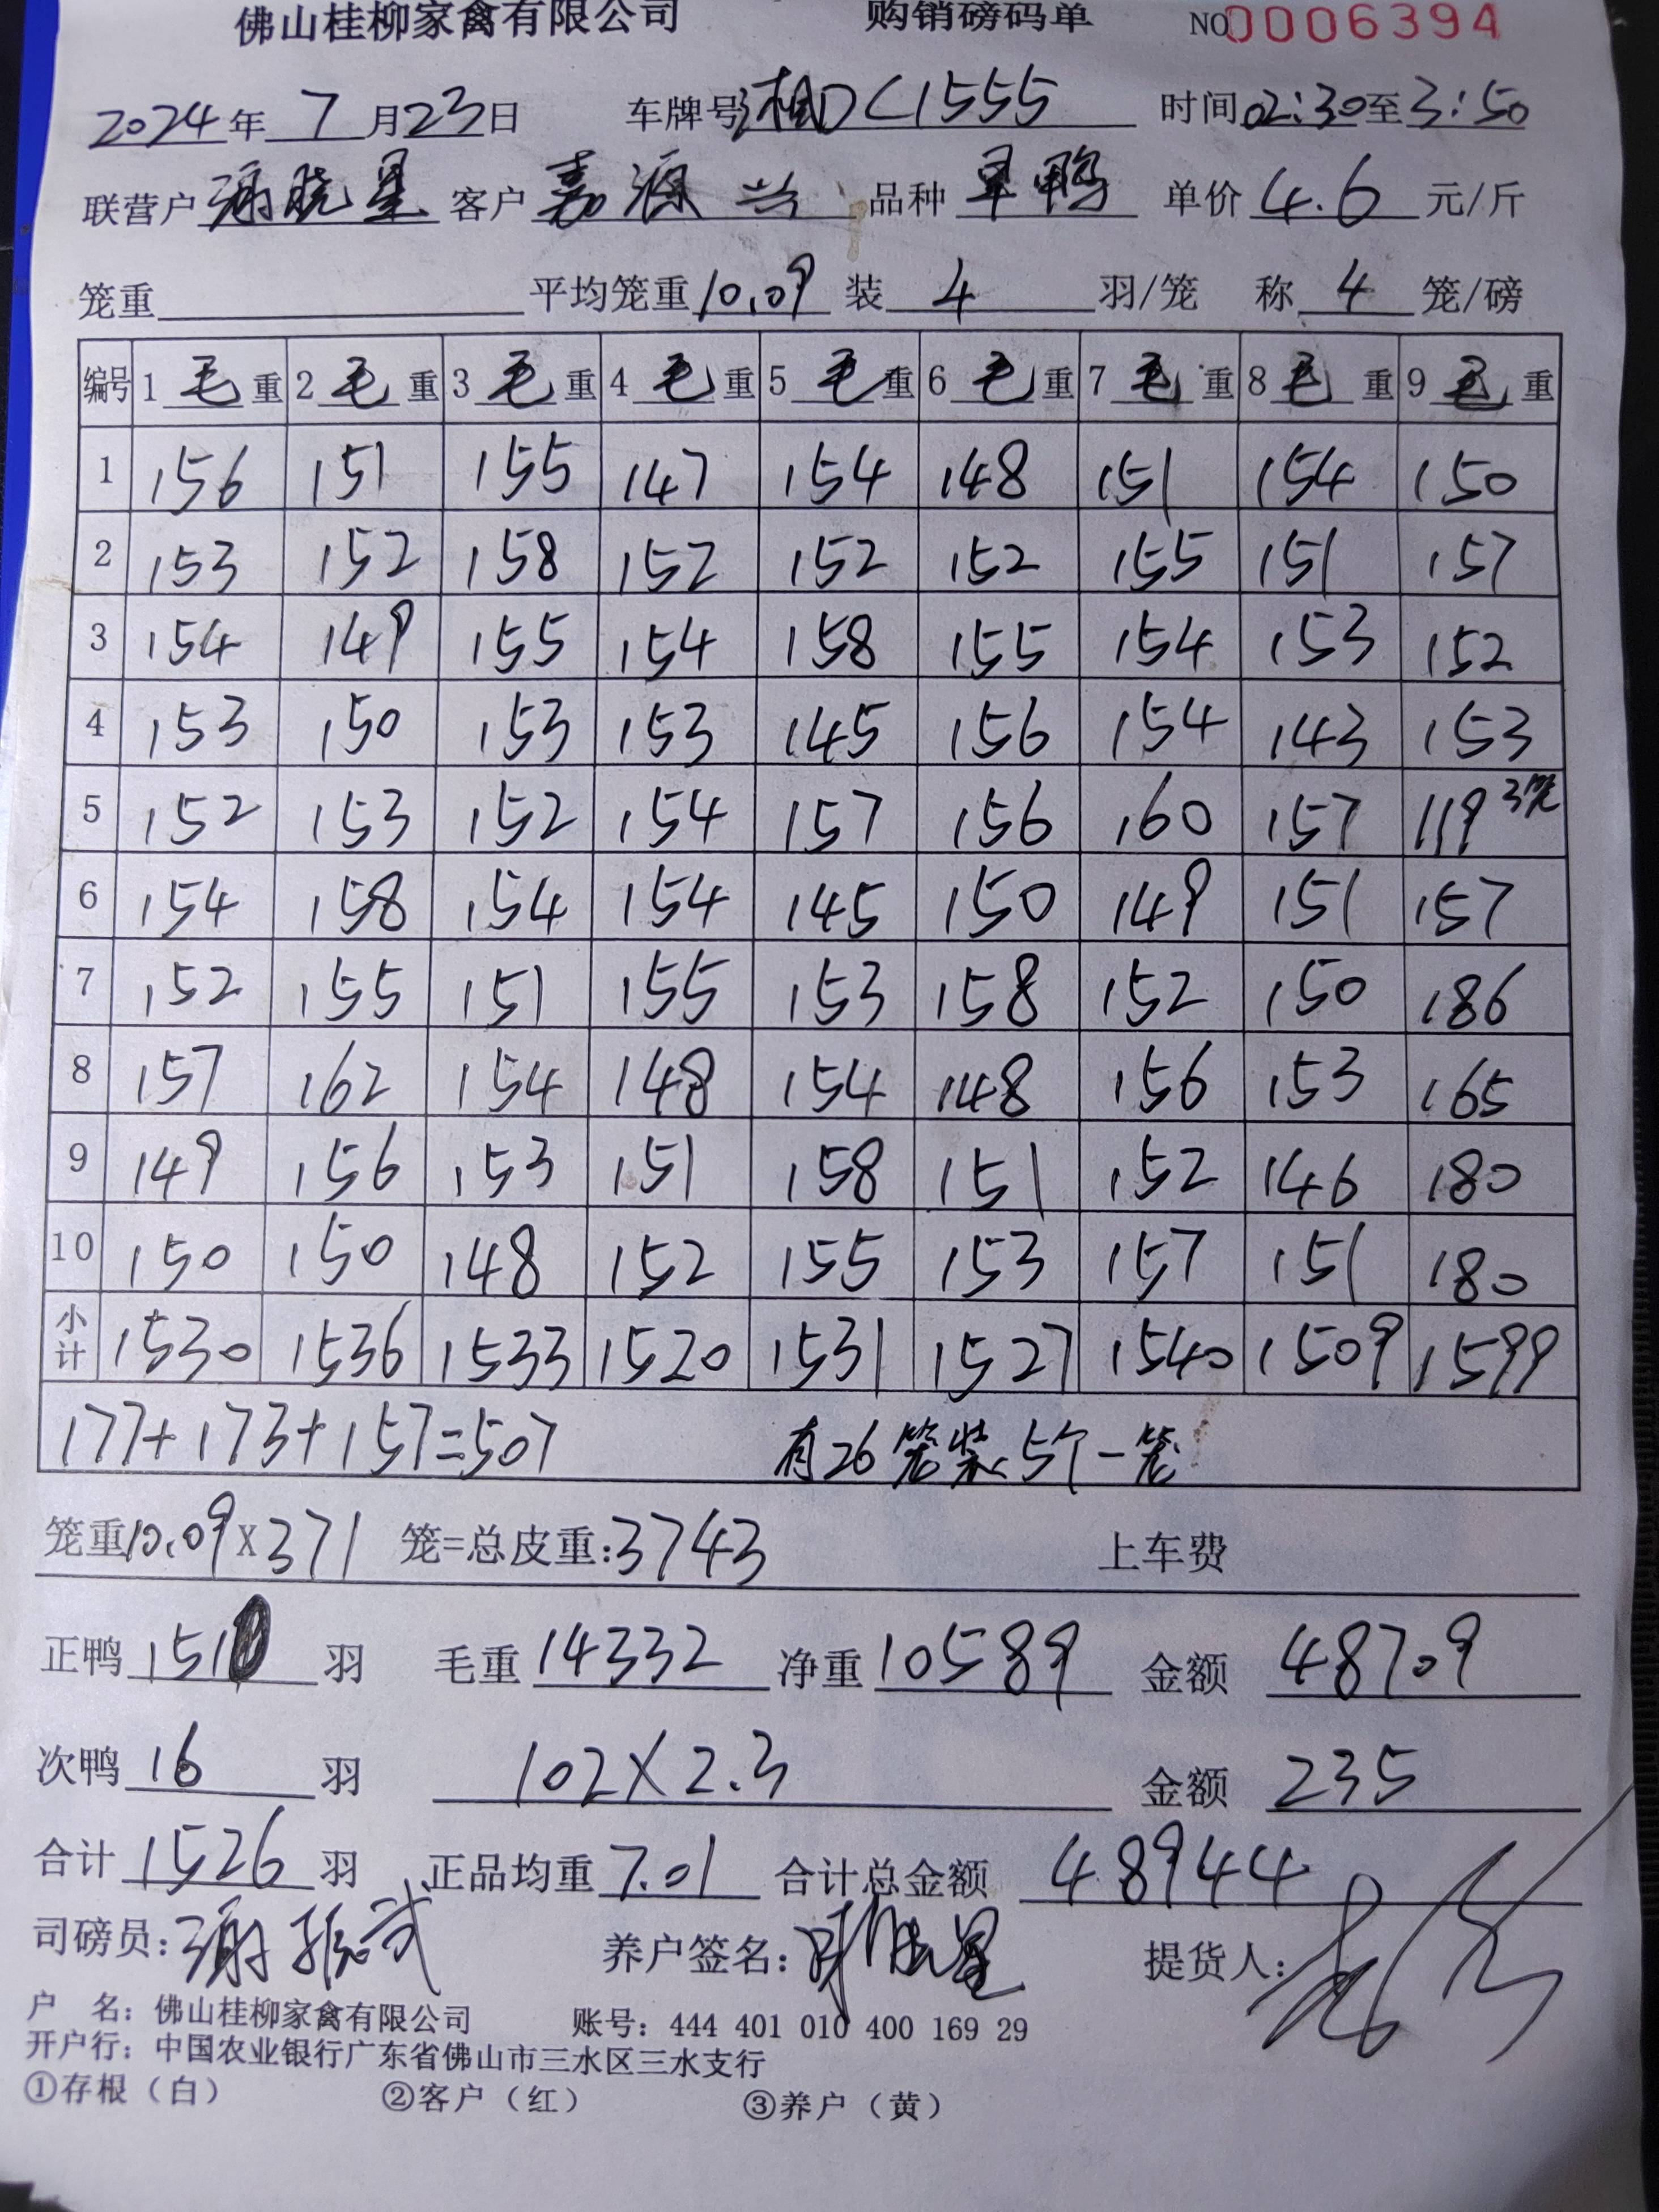 佛山桂柳家禽有限公司 购销磅码单 NO 0006394
2024年 7 月23日 车牌号 湘DC1555 时间02:30至3:50
联营户 谢晓星 客户 嘉源兴 品种 旱鸭 单价 4.6 元/斤
笼重 平均笼重 10.09 装 4 羽/笼 称 4 笼/磅
编号 1 毛 重 2 毛 重 3 毛 重 4 毛 重 5 毛 重 6 毛 重 7 毛 重 8 毛 重 9 毛 重
1 156 151 155 147 154 148 151 154 150
2 153 152 158 152 152 152 155 151 157
3 154 149 155 154 158 155 154 153 152
4 153 150 153 153 145 156 154 143 153
5 152 153 152 154 157 156 160 157 119 3笼
6 154 158 154 154 145 150 149 151 157
7 152 155 151 155 153 158 152 150 186
8 157 162 154 148 154 148 156 153 165
9 149 156 153 151 158 151 152 146 180
10 150 150 148 152 155 153 157 151 180
小计 1530 1536 1533 1520 1531 1527 1540 1509 1599
177+173+157=507 有26笼装5个一笼
笼重10.09X371 笼=总皮重:3743 上车费
正鸭 1510 羽 毛重 14332 净重 10589 金额 48709
次鸭 16 羽 102X2.3 金额 235
合计 1526 羽 正品均重 7.01 合计总金额 48944
司磅员: 谢 养户签名: 星 提货人:
户 名: 佛山桂柳家禽有限公司 账号: 444 401 010 400 169 29
开户行: 中国农业银行广东省佛山市三水区三水支行
①存根（白） ②客户（红） ③养户（黄）